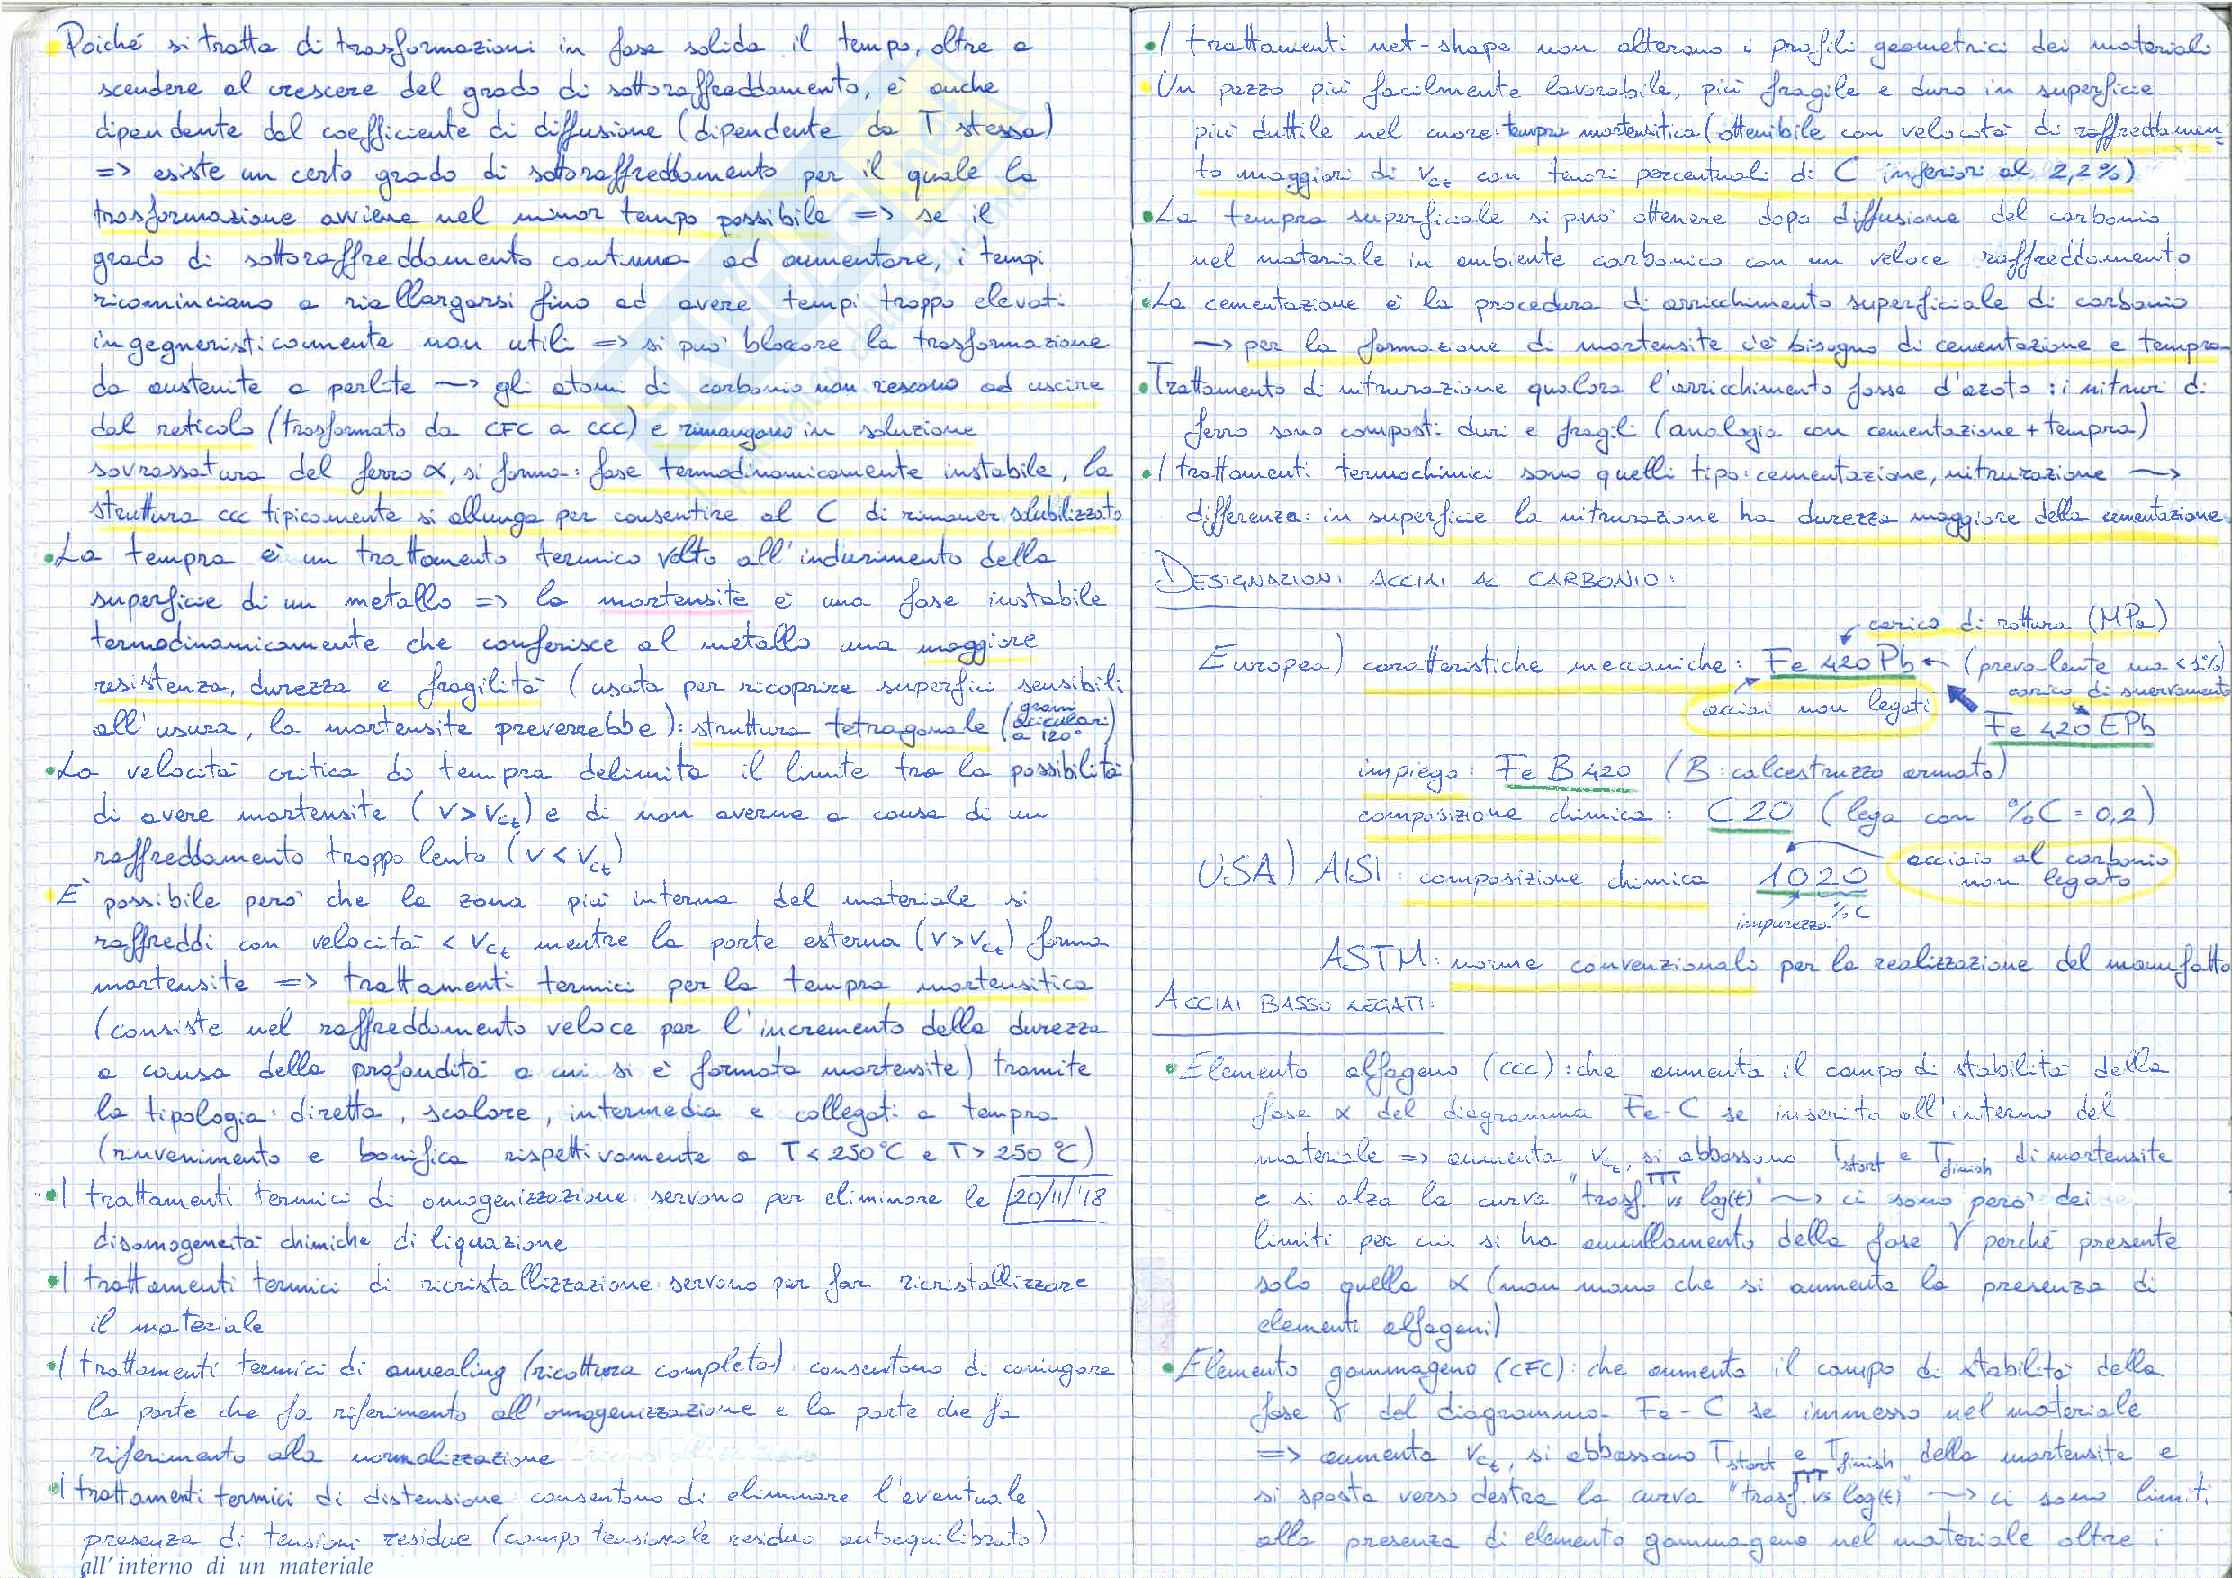 Poiché si tratta di trasformazioni in fase solida il tempo, oltre a
scendere al crescere del grado di sottoraffreddamento, è anche
dipendente dal coefficiente di diffusione (dipendente da T stessa)
=> esiste un certo grado di sottoraffreddamento per il quale la
trasformazione avviene nel minor tempo possibile => se il
grado di sottoraffreddamento continua ad aumentare, i tempi
ricominciano a riallargarsi fino ad avere tempi troppo elevati
ingegneristicamente non utili => si può bloccare la trasformazione
da austenite a perlite –> gli atomi di carbonio non riescono ad uscire
dal reticolo (trasformato da CFC a CCC) e rimangono in soluzione
sovrassatura del ferro α, si forma: fase termodinamicamente instabile, la
struttura ccc tipicamente si allunga per consentire al C di rimaner solubilizzato
• La tempra è un trattamento termico volto all'indurimento della
superficie di un metallo => la martensite è una fase instabile
termodinamicamente che conferisce al metallo una maggiore
resistenza, durezza e fragilità (usata per ricoprire superfici sensibili
all'usura, la martensite preverrebbe): struttura tetragonale (grani aciculari a 120°)
• La velocità critica di tempra delimita il limite tra la possibilità
di avere martensite (V>Vct) e di non averne a causa di un
raffreddamento troppo lento (V<Vct)
È possibile però che la zona più interna del materiale si
raffreddi con velocità < Vct mentre la parte esterna (V>Vct) forma
martensite => trattamenti termici per la tempra martensitica
(consiste nel raffreddamento veloce per l'incremento della durezza
a causa della profondità a cui si è formata martensite) tramite
la tipologia: diretta, scalare, intermedia e collegati a tempra
(rinvenimento e bonifica rispettivamente a T<250°C e T>250°C)
• I trattamenti termici di omogenizzazione servono per eliminare le 20/11/'18
disomogeneità chimiche di liquazione
• I trattamenti termici di ricristallizzazione servono per far ricristallizzare
il materiale
• I trattamenti termici di annealing (ricottura completa) consentono di coniugare
la parte che fa riferimento all'omogenizzazione e la parte che fa
riferimento alla normalizzazione
• I trattamenti termici di distensione consentono di eliminare l'eventuale
presenza di tensioni residue (campo tensionale residuo autoequilibrato)
all'interno di un materiale
• I trattamenti net-shape non alterano i profili geometrici dei materiali
Un pezzo più facilmente lavorabile, più fragile e duro in superficie
più duttile nel cuore: tempra martensitica (ottenibile con velocità di raffreddamen-
to maggiori di Vct con tenori percentuali di C inferiori al 2,2%)
• La tempra superficiale si può ottenere dopo diffusione del carbonio
nel materiale in ambiente carbonico con un veloce raffreddamento
• La cementazione è la procedura di arricchimento superficiale di carbonio
–> per la formazione di martensite c'è bisogno di cementazione e tempra
• Trattamento di nitrurazione qualora l'arricchimento fosse d'azoto: i nitruri di
ferro sono composti duri e fragili (analogia con cementazione + tempra)
• I trattamenti termochimici sono quelli tipo: cementazione, nitrurazione –>
differenza: in superficie la nitrurazione ha durezza maggiore della cementazione
DESIGNAZIONI ACCIAI AL CARBONIO:
carico di rottura (MPa)
Europea) caratteristiche meccaniche: Fe 420 Pb <- (prevalente ma <1%)
acciai non legati
carico di snervamento
Fe 420 EPb
impiego: Fe B 420 (B: calcestruzzo armato)
composizione chimica: C 20 (lega con %C = 0,2)
USA) AISI: composizione chimica 1020 acciaio al carbonio non legato
impurezza %C
ASTM: norme convenzionali per la realizzazione del manufatto
ACCIAI BASSO LEGATI:
• Elemento alfageno (ccc): che aumenta il campo di stabilità della
fase α del diagramma Fe-C se inserito all'interno del
materiale => aumenta Vct, si abbassano Tstart e Tfinish di martensite
e si alza la curva TTT "trasf. vs log(t)" –> ci sono però dei
limiti per cui si ha annullamento della fase γ perché presente
solo quella α (man mano che si aumenta la presenza di
elementi alfageni)
• Elemento gammageno (CFC): che aumenta il campo di stabilità della
fase γ del diagramma Fe-C se immesso nel materiale
=> aumenta Vct, si abbassano Tstart e Tfinish della martensite e
si sposta verso destra la curva TTT "trasf. vs log(t)" –> ci sono limiti
alla presenza di elemento gammageno nel materiale oltre i